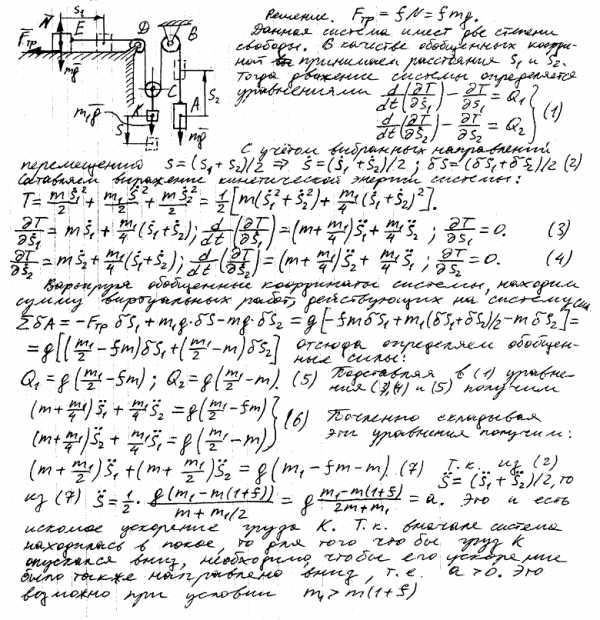 Решение. Fтр = fN = fmg.
Данная система имеет две степени
свободы. В качестве обобщенных коорди-
нат принимаем расстояния S₁ и S₂.
Тогда движение системы определяется
уравнениями d/dt(∂T/∂Ṡ₁) − ∂T/∂S₁ = Q₁ } (1)
d/dt(∂T/∂Ṡ₂) − ∂T/∂S₂ = Q₂
S₁
N
E
D
B
Fтр
mg
C
K
A
S₂
m₁g
S
mg
С учетом выбранных направлений
перемещений S = (S₁+S₂)/2 ⇒ Ṡ = (Ṡ₁+Ṡ₂)/2 ; δS = (δS₁+δS₂)/2 (2)
Составляем выражение кинетической энергии системы:
T = mṠ₁²/2 + m₁Ṡ²/2 + mṠ₂²/2 = 1/2[m(Ṡ₁²+Ṡ₂²) + m₁/4(Ṡ₁+Ṡ₂)²].
∂T/∂Ṡ₁ = mṠ₁ + m₁/4(Ṡ₁+Ṡ₂); d/dt(∂T/∂Ṡ₁) = (m+m₁/4)S̈₁ + m₁/4 S̈₂ ; ∂T/∂S₁ = 0. (3)
∂T/∂Ṡ₂ = mṠ₂ + m₁/4(Ṡ₁+Ṡ₂); d/dt(∂T/∂Ṡ₂) = (m+m₁/4)S̈₂ + m₁/4 S̈₁ ; ∂T/∂S₂ = 0. (4)
Варьируя обобщенные координаты системы, находим
сумму виртуальных работ, действующих на систему сил
ΣδA = −Fтр δS₁ + m₁g·δS − mg·δS₂ = g[−fmδS₁ + m₁(δS₁+δS₂)/2 − mδS₂] =
= g[(m₁/2 − fm)δS₁ + (m₁/2 − m)δS₂] отсюда определяем обобщен-
ные силы:
Q₁ = g(m₁/2 − fm) ; Q₂ = g(m₁/2 − m). (5) Подставляя в (1) уравне-
ния (3), (4) и (5) получим
(m+m₁/4)S̈₁ + m₁/4 S̈₂ = g(m₁/2 − fm) } (6) Почленно складывая
(m+m₁/4)S̈₂ + m₁/4 S̈₁ = g(m₁/2 − m) эти уравнения получим:
(m+m₁/2)S̈₁ + (m+m₁/2)S̈₂ = g(m₁ − fm − m). (7) Т.к. из (2)
S̈ = (S̈₁+S̈₂)/2, то
из (7) S̈ = 1/2 · g(m₁−m(1+f))/(m+m₁/2) = g (m₁−m(1+f))/(2m+m₁) = a. Это и есть
искомое ускорение груза K. Т.к. вначале система
находилась в покое, то для того что бы груз K
опускался вниз, необходимо, чтобы его ускорение
было также направлено вниз, т.е. a > 0. Это
возможно при условии m₁ > m(1+f)